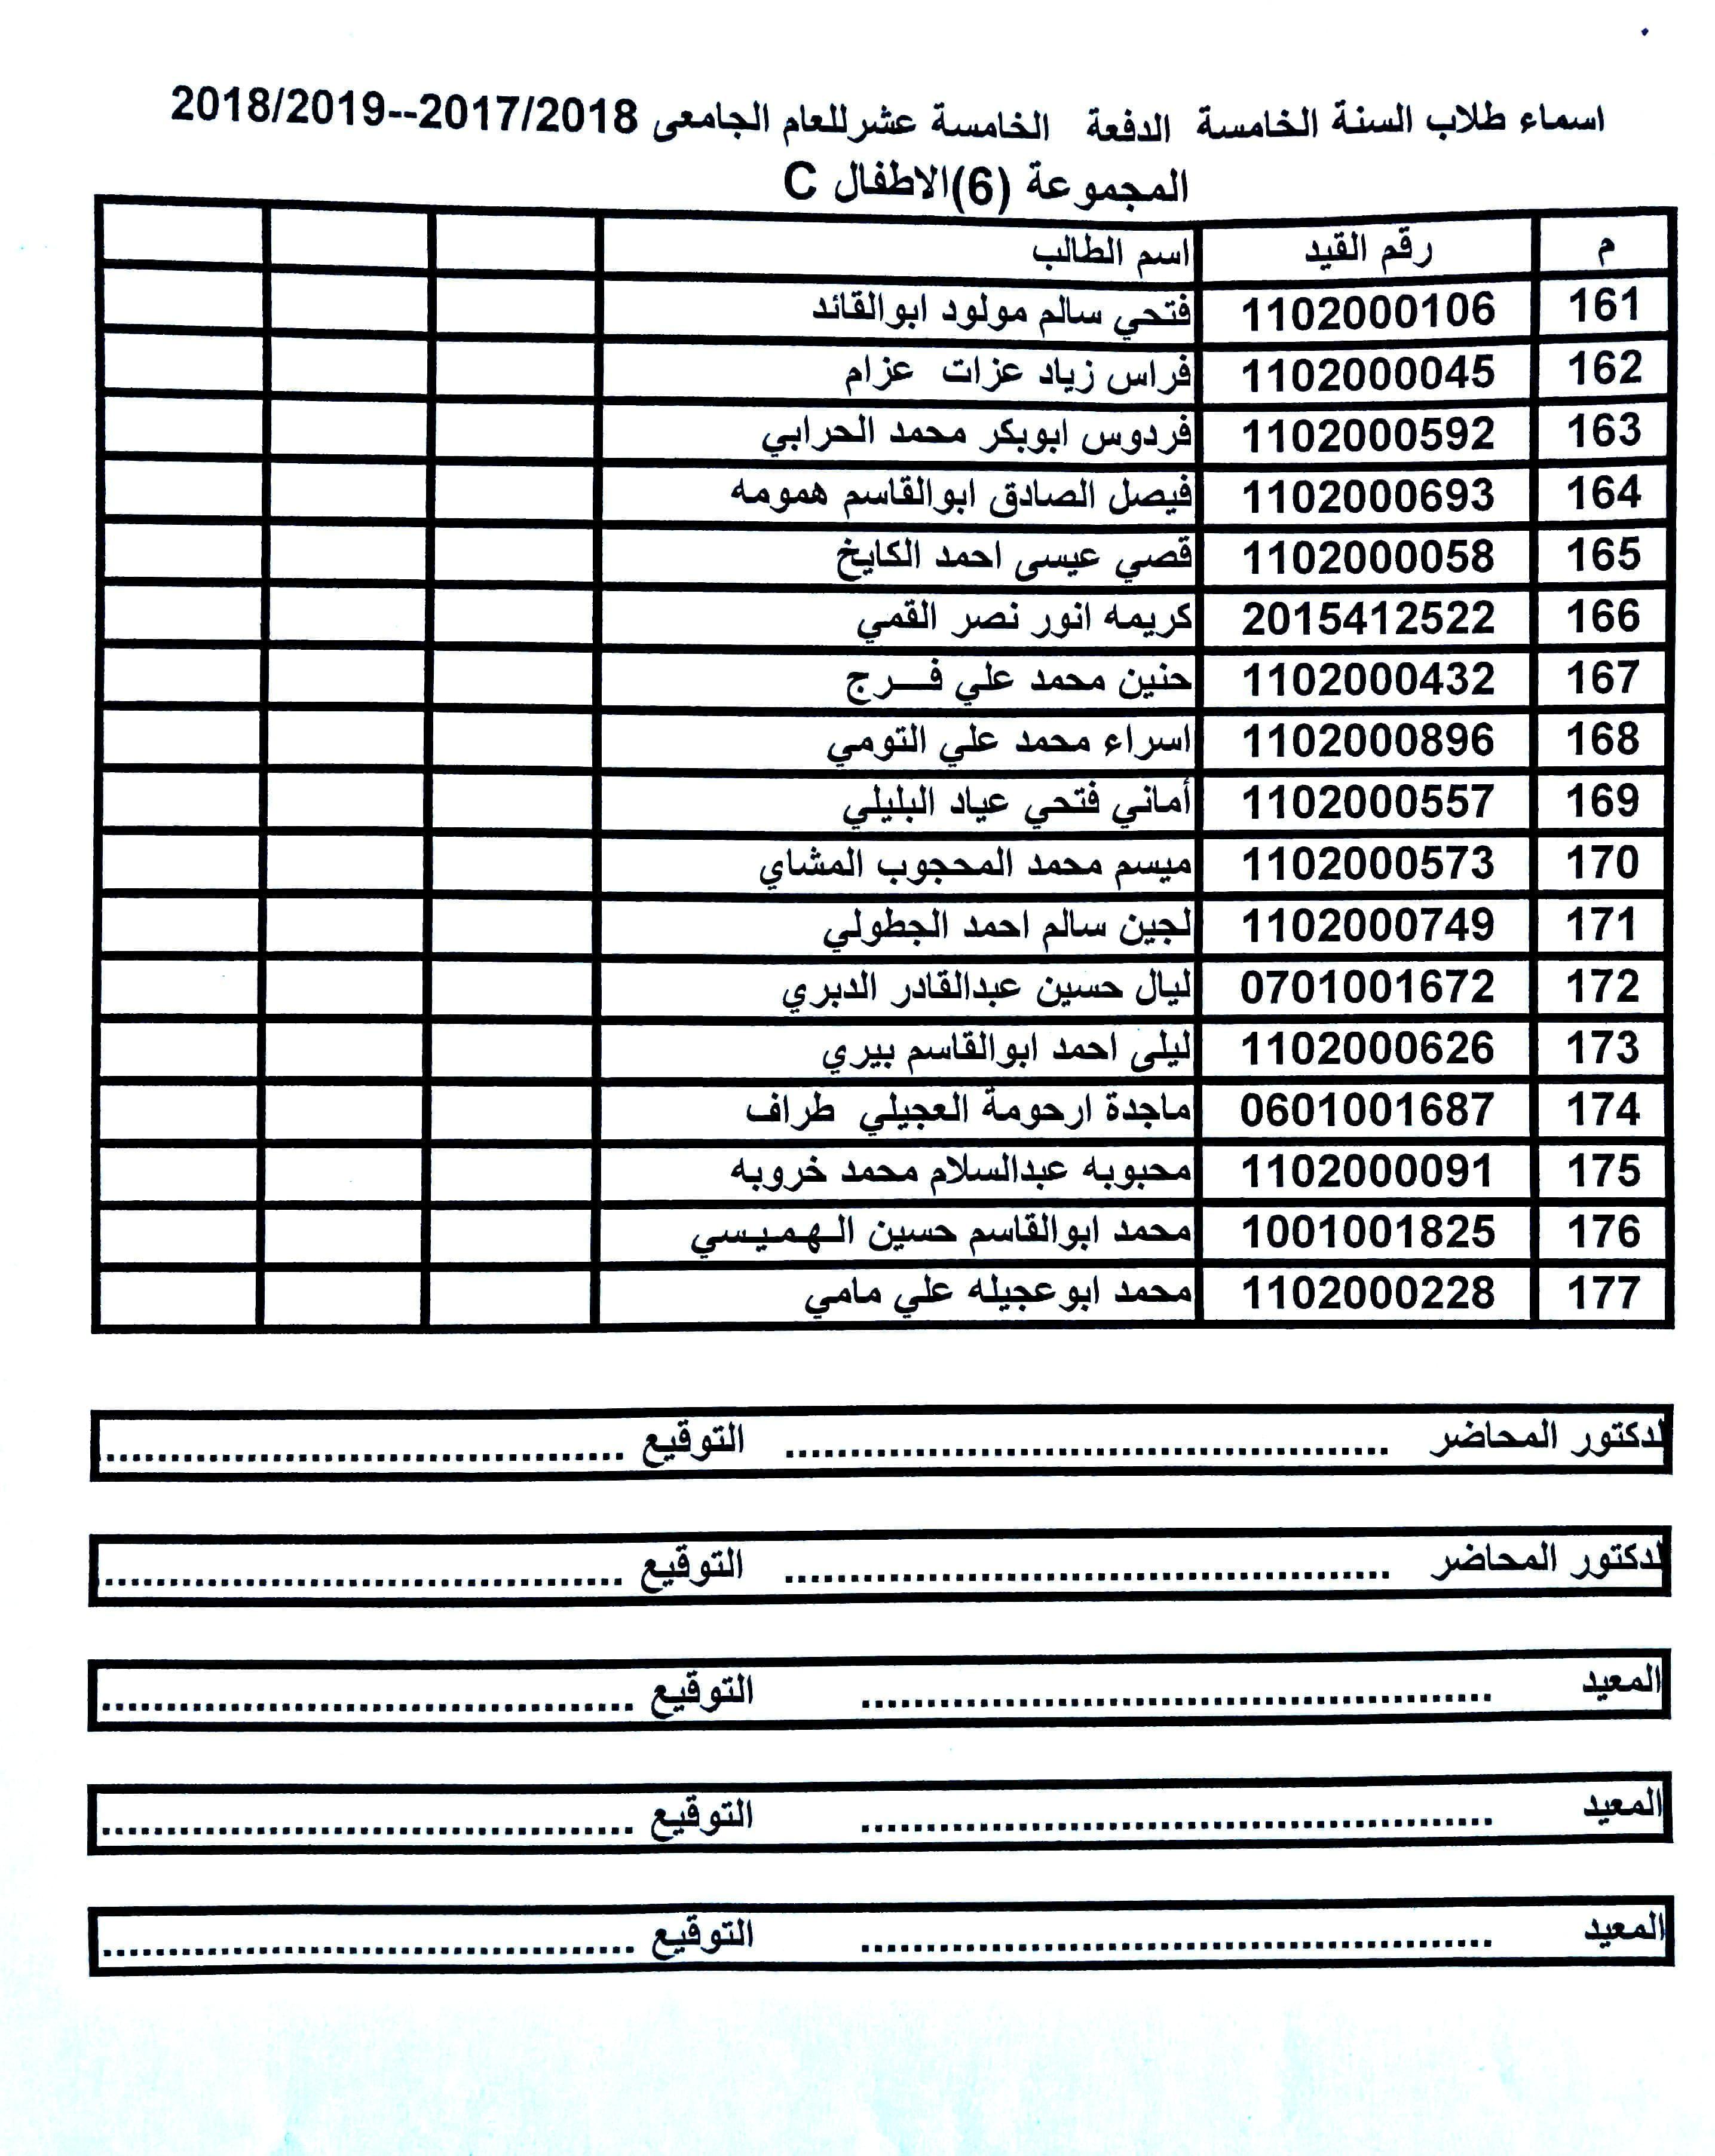 اسماء طلاب السنة الخامسة الدفعة الخامسة عشرللعام الجامعى 2017/2018--2018/2019
المجموعة (6)الاطفال C
م رقم القيد اسم الطالب
161 1102000106 فتحي سالم مولود ابوالقائد
162 1102000045 فراس زياد عزات عزام
163 1102000592 فردوس ابوبكر محمد الحرابي
164 1102000693 فيصل الصادق ابوالقاسم همومه
165 1102000058 قصي عيسى احمد الكايخ
166 2015412522 كريمه انور نصر القمي
167 1102000432 حنين محمد علي فـــرج
168 1102000896 اسراء محمد علي التومي
169 1102000557 أماني فتحي عياد البليلي
170 1102000573 ميسم محمد المحجوب المشاي
171 1102000749 لجين سالم احمد الجطولي
172 0701001672 ليال حسين عبدالقادر الدبري
173 1102000626 ليلى احمد ابوالقاسم بيري
174 0601001687 ماجدة ارحومة العجيلي طراف
175 1102000091 محبوبه عبدالسلام محمد خروبه
176 1001001825 محمد ابوالقاسم حسين الـهـمـيـسي
177 1102000228 محمد ابوعجيله علي مامي
لدكتور المحاضر ............................................... التوقيع ........................................
لدكتور المحاضر ............................................... التوقيع ........................................
المعيد ................................................. التوقيع .........................................
المعيد ................................................. التوقيع .........................................
المعيد ................................................. التوقيع .........................................